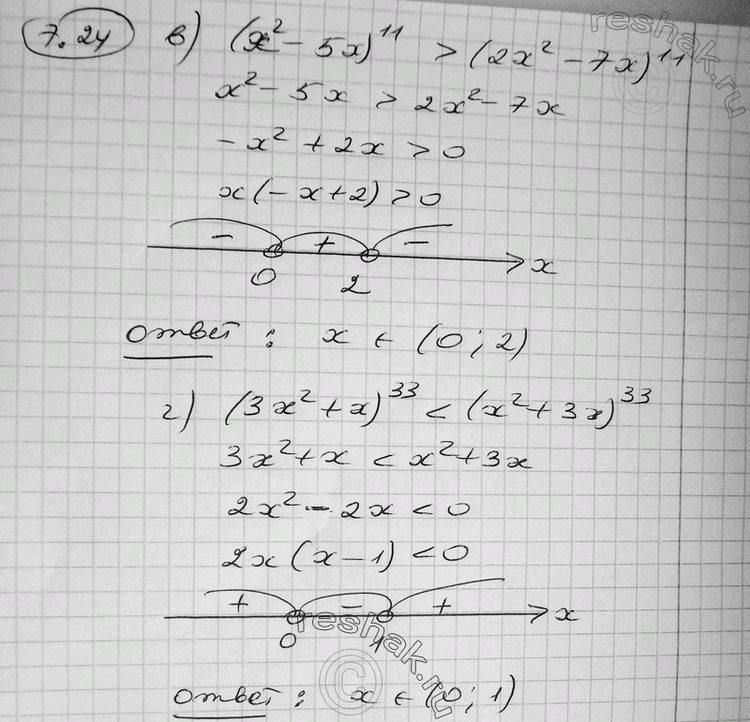 7.24 в) (x² - 5x)¹¹ > (2x² - 7x)¹¹
x² - 5x > 2x² - 7x
-x² + 2x > 0
x(-x+2) > 0
- + - x
0 2
Ответ: x ∈ (0; 2)
г) (3x² + x)³³ < (x² + 3x)³³
3x² + x < x² + 3x
2x² - 2x < 0
2x(x - 1) < 0
+ - + x
0 1
Ответ: x ∈ (0; 1)
reshak.ru
reshak.ru